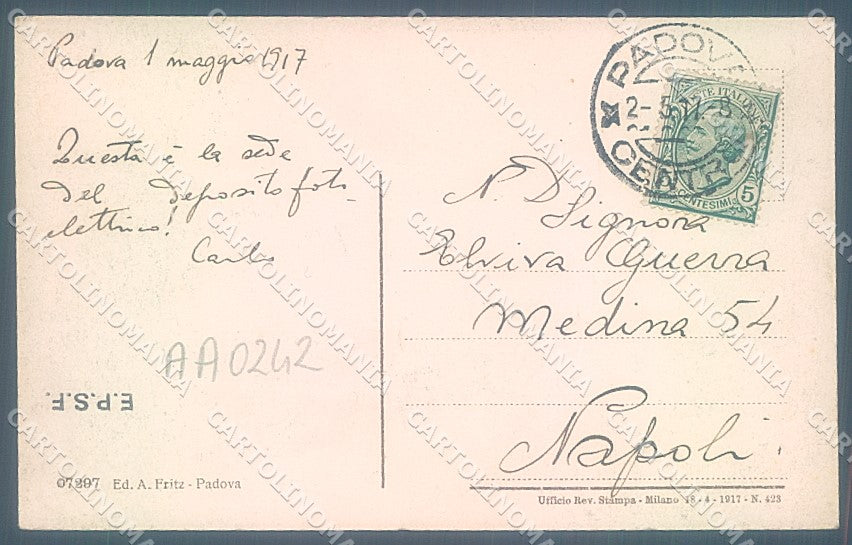 Padova 1 maggio 1917
Questa è la sede
del deposito foto-
elettrico!
Carlo
AA0242
E.P.S.F.
07297 Ed. A. Fritz - Padova
PADOVA
2-5.17-8
CENTR
POSTE ITALIANE
CENTESIMI 5
N. D. Signora
Elvira Guerra
Medina 54
Napoli.
Ufficio Rev. Stampa - Milano 18-4-1917 - N. 423
CARTOLINOMANIA